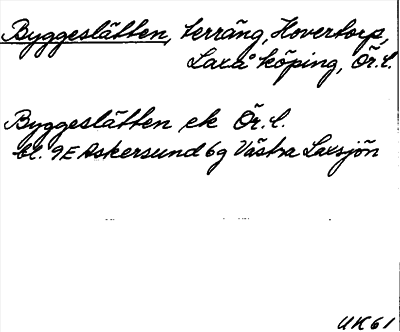 Byggeslätten, terräng, Hovertorp,
Laxå köping, Ör. l.
Byggeslätten ek Ör. l.
bl. 9E Askersund 6g Västra Laxsjön
UK 61